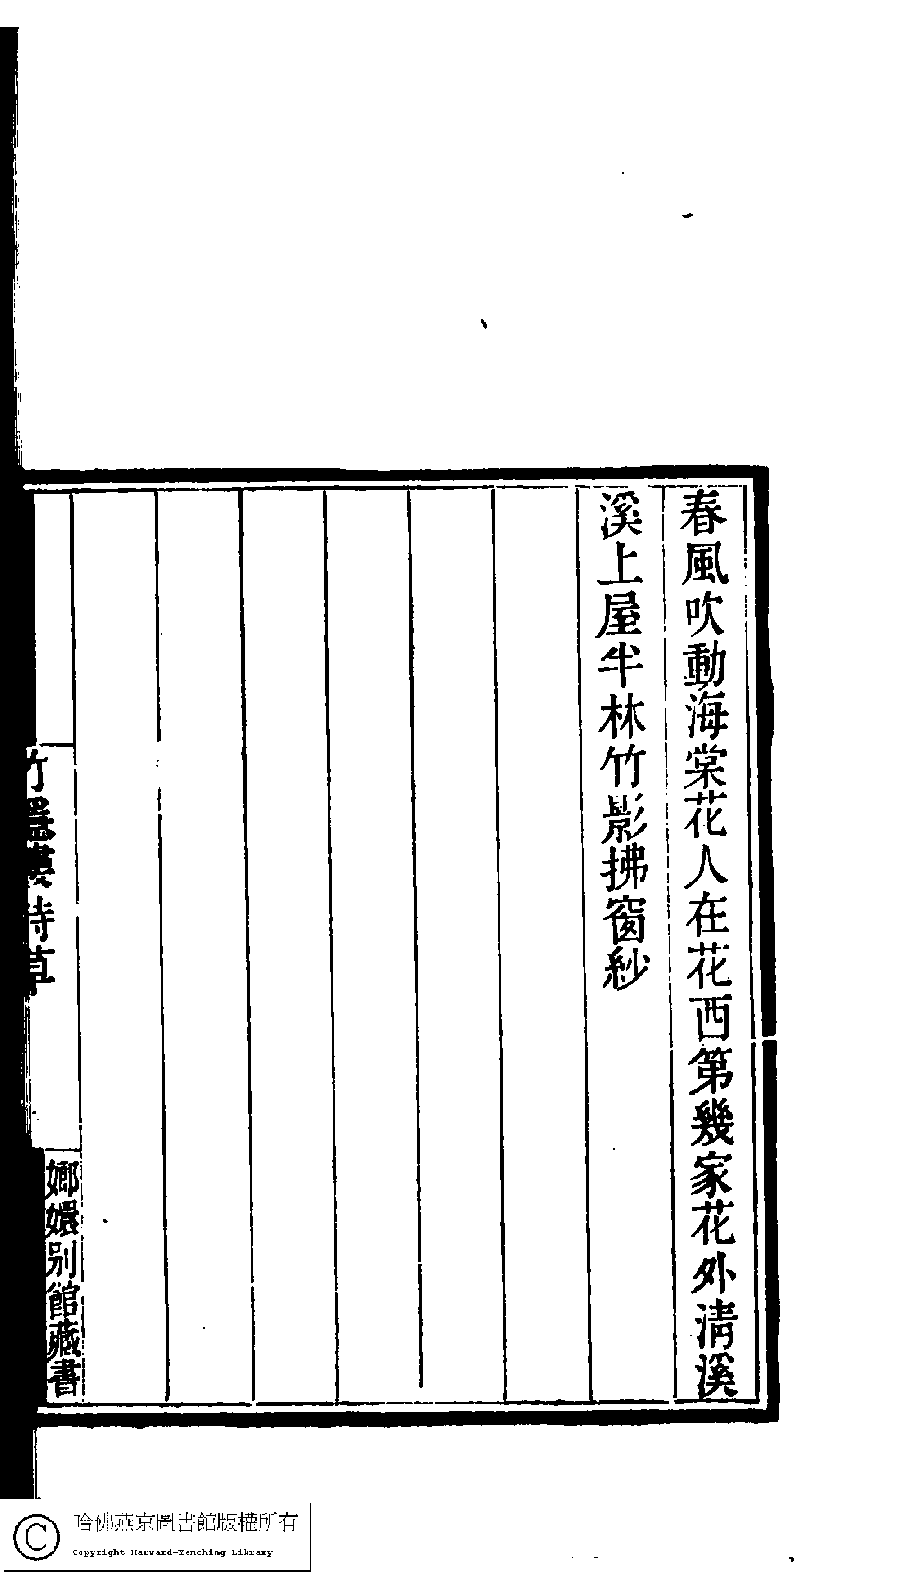 春風吹動海棠花人在花西第幾家花外淸溪
溪上屋半林竹影拂窗紗
竹隱樓詩草
嫏嬛别館藏書
哈佛燕京圖書館版權所有
Copyright Harvard-Yenching Library